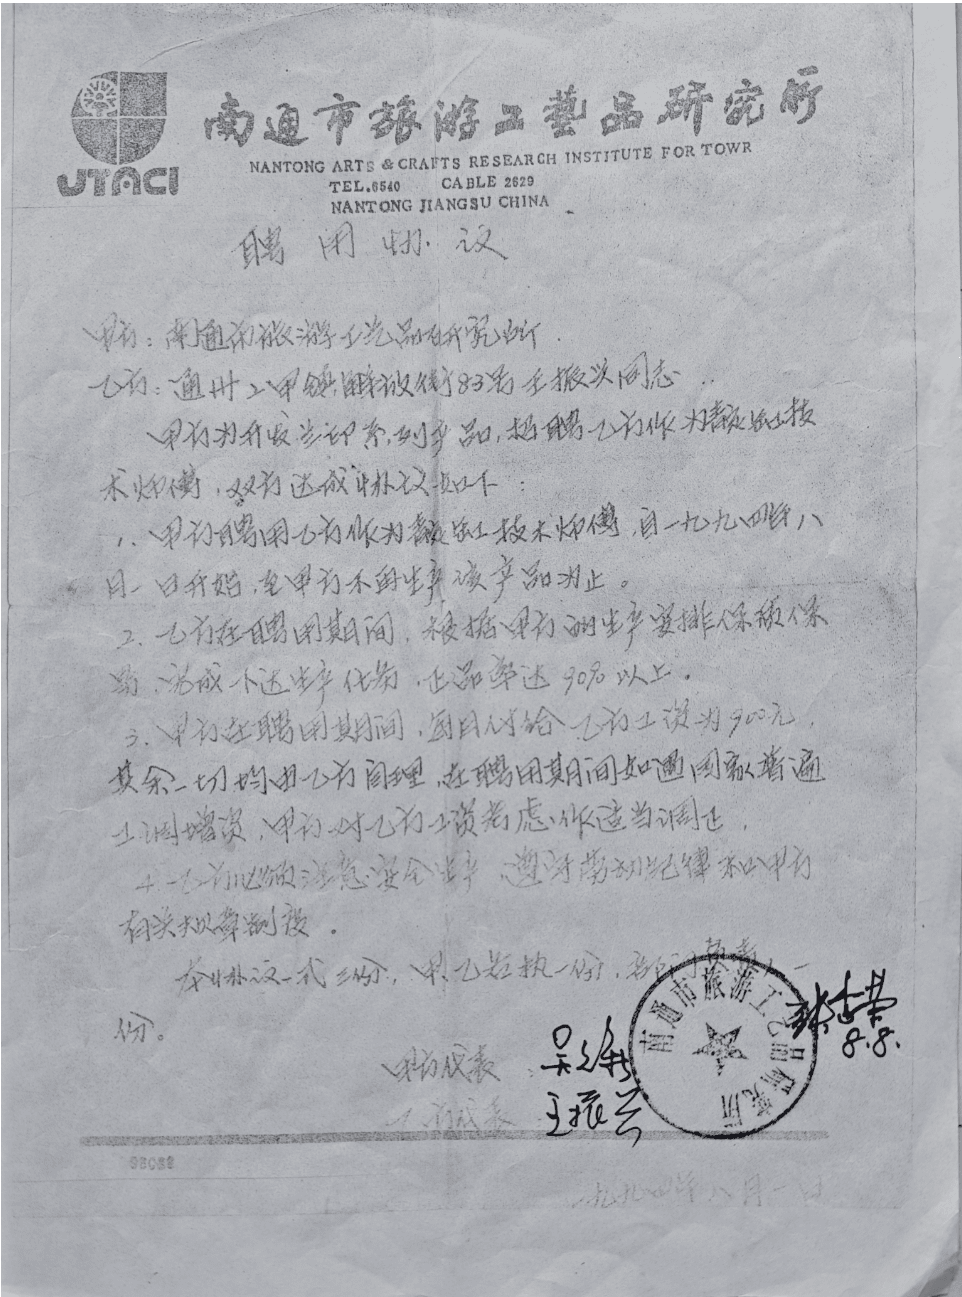 南通市旅游工藝品研究所
UTACI
NANTONG ARTS & CRAFTS RESEARCH INSTITUTE FOR TOWR
TEL.6540 CABLE 2629
NANTONG JIANGSU CHINA
聘用协议
甲方：南通市旅游工艺品研究所
乙方：通州二甲镇解放街83号王振兴同志
甲方为开发 印系列产品，招聘乙方作为 技
术师傅，双方达成协议如下：
1、甲方聘用乙方作为 技术师傅，自一九九四年八
月一日开始，至甲方不再生产该产品为止。
2、乙方在聘用期间，根据甲方的生产安排保质保
易，完成下达生产任务，正品率达90%以上。
3、甲方在聘用期间，每月付给乙方工资为900元，
其余一切均由乙方自理，在聘用期间如遇国家普遍
工调增资，甲方对乙方工资考虑作适当调正。
4、乙方必须注意安全生产，遵守劳动纪律和甲方
有关规章制度。
本协议一式三份，甲、乙方各执一份， 一
份。
甲方代表：
乙方代表：王振兴
南通市旅游工艺品研究所
8.8.
一九九四年八月一日